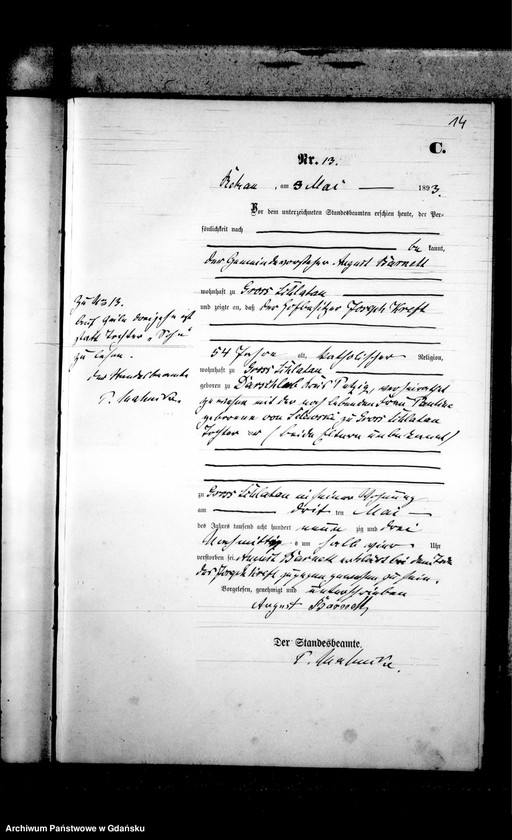 14
C.
Nr. 13.
am 3 Mai 1893.
Vor dem unterzeichneten Standesbeamten erschien heute, der Per-
sönlichkeit nach
be kannt,
der Gemeindevorsteher August Barnett
wohnhaft zu Gross Schlatau
und zeigte an, daß der Hofbesitzer Joseph Kreft
54 Jahre alt, katholischer Religion,
wohnhaft zu Gross Schlatau
geboren zu Kreis Putzig, verheirathet
gewesen mit der noch lebenden Frau Pauline
geborene von zu Gross Schlatau
Tochter (beide Eltern unbekannt)
zu Gross Schlatau in seiner Wohnung
am dritten Mai
des Jahres tausend acht hundert neunzig und drei
Nachmittags um halb vier Uhr
verstorben sei. August Barnett erklärt bei dem Tode
des Joseph Kreft zugegen gewesen zu sein.
Vorgelesen, genehmigt und unterschrieben
August Barnett
Der Standesbeamte.
Zu Nr 13.
statt Tochter „Sohn"
zu lesen.
Der Standesbeamte
Archiwum Państwowe w Gdańsku